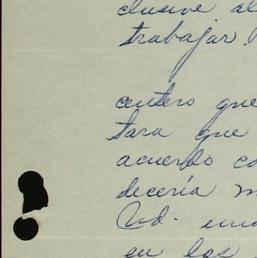 clusive al
trabajar.
entero que
tara que
acuerdo co
decería m
Ud. 
en los